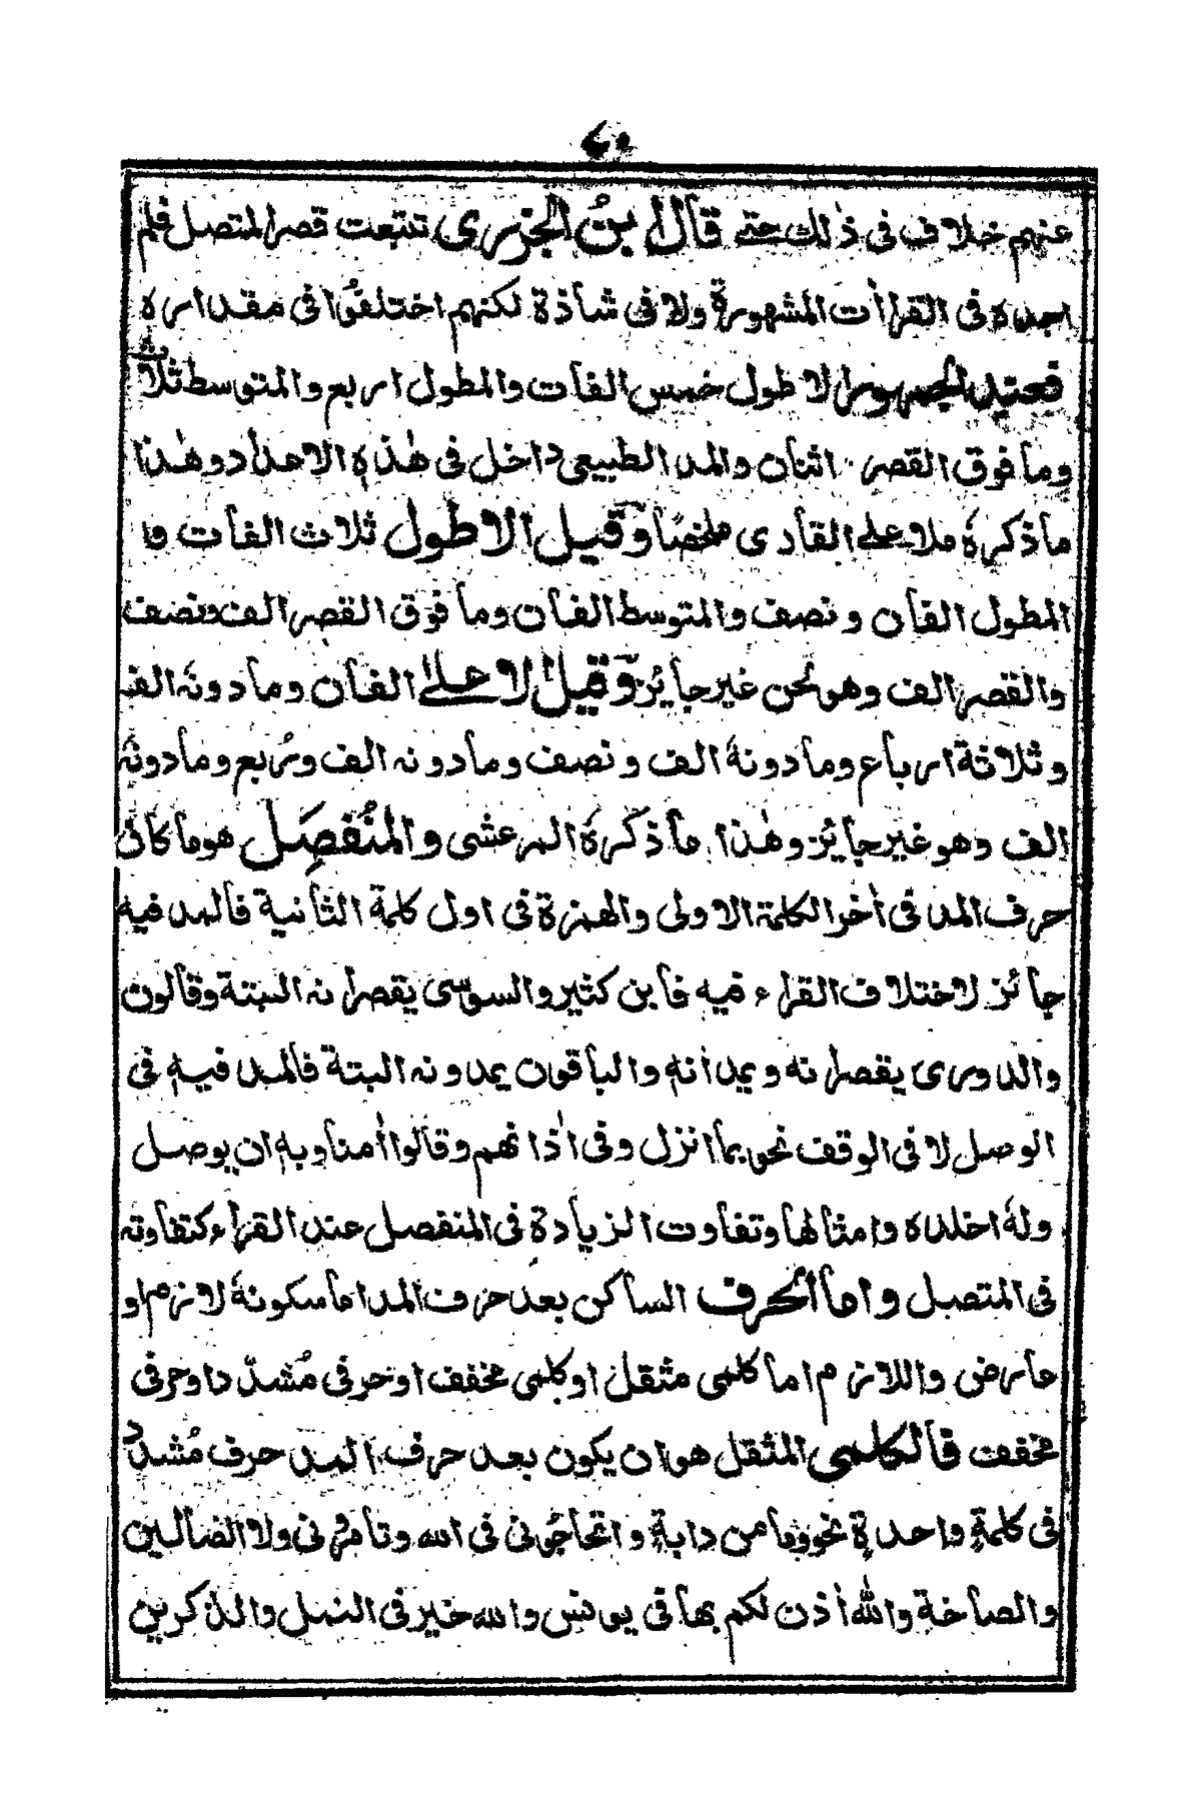 عنهم خلاف فى ذٰلك حتے قال ابنُ الجزرى تتبعت قصر المتصل فلم
اجده فى القراٰت المشهورة ولا فى شاذة لكنهم اختلفوا فى مقداره
فعند الجمهور الاطول خمس الفات والمطول اربع والمتوسط ثلاث
وما فوق القصر اثنان والمد الطبيعى داخل فى هٰذه الاعداد وهٰذا
ما ذكرهٗ ملا على القارى ملخصًا وقيل الاطول ثلاث الفات و
المطول الفان ونصف والمتوسط الفان وما فوق القصر الف ونصف
والقصر الف وهو نحن غير جائز وقيل الاعلےٰ الفان وما دونهٗ الف
وثلاثة ارباع وما دونهٗ الف ونصف وما دونه الف وربع وما دونهٗ
الف وهو غير جائز وهٰذا ما ذكرهٗ المرعشى والمُنْفَصِل هو ما كان
حرف المد فى اٰخر الكلمة الاولى والهمزة فى اول كلمة الثانية فالمد فيه
جائز لاختلاف القراء فيه فابن كثير والسوسى يقصرانه البتة وقالون
والدورى يقصرانه ويمدانهٖ والباقون يمدونه البتة فالمد فيهٖ فى
الوصل لا فى الوقف نحو بما انزل وفى اٰذانهم وقالوا اٰمنا وبهٖ ان يوصل
ولهٗ اخلده وامثالها وتفاوت الزيادة فى المنفصل عند القراء كتفاوته
فى المتصل واما الحرف الساكن بعد حرف المد اما سكونهٗ لازم او
عارض واللازم اما كلمى مثقل او كلمى مخفف او حرفى مُشدّد او حرفى
مخفف فالكلمى المثقل هو ان يكون بعد حرف المد حرف مُشدّد
فى كلمةٍ واحدةٍ نحو وما من دابةٍ واتحاجونى فى الله وتامرونى ولا الضالين
والصاخة واللٰه اٰذن لكم بها فى يونس والله خير فى النمل والذكرين